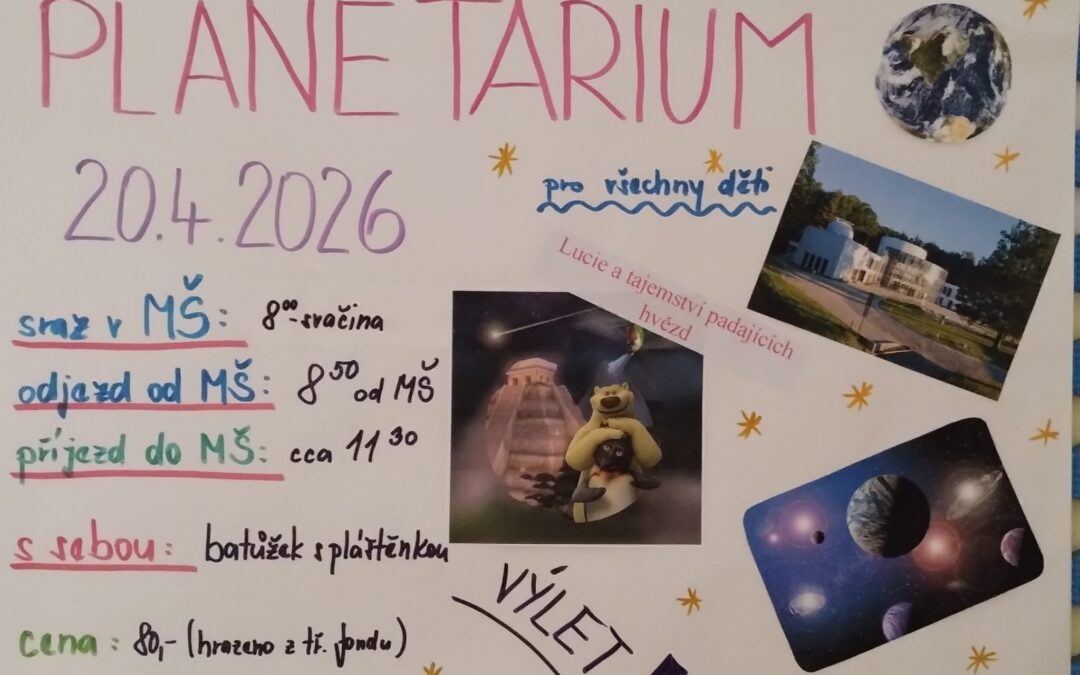 PLANETARIUM
20.4.2026
pro všechny děti
Lucie a tajemství padajících
hvězd
sraz v MŠ: 8⁰⁰-svačina
odjezd od MŠ: 8⁵⁰ od MŠ
příjezd do MŠ: cca 11³⁰
s sebou: batůžek s pláštěnkou
cena: 80,- (hrazeno z tř. fondu)
VÝLET